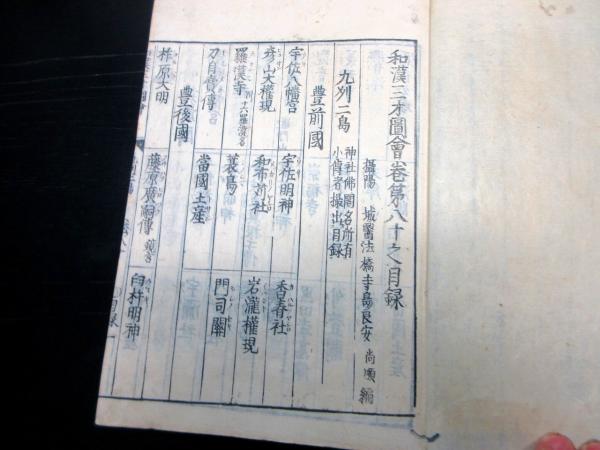 和漢三才圖會卷第八十之目録
攝陽 城醫法橋寺島良安 尚順 編
九州二島 神社佛閣名所有
小傳者撮出目録
豊前國
宇佐八幡宮 宇佐明神 香春社
彦山大權現 和布苅社 岩瀧權現
羅漢寺 十六羅漢 蓑島 門司關
刀自賣傳 當國土産
豊後國
柞原大明 藤原廣嗣傳 鏡宮 臼杵明神